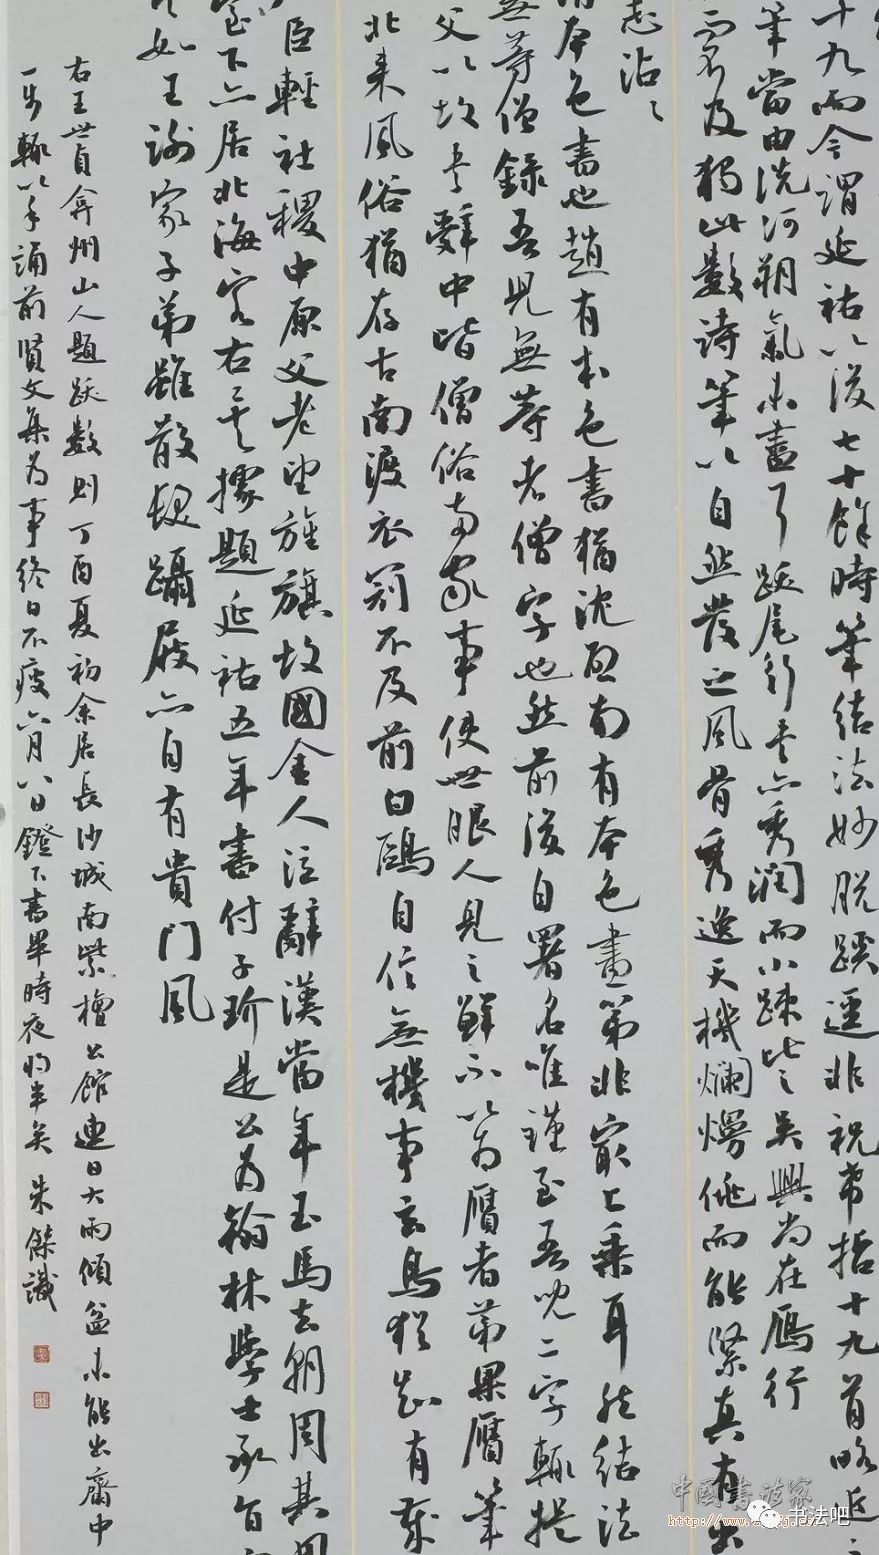 十九而今謂延祐以後七十餘時筆結法妙脫蹊逕非祝希哲十九首略近
筆當由洗河朔氣未盡耳跋尾行書亦秀潤而小疎比之吳興尚在雁行
雲及楊此數詩筆以自然發之風骨秀逸天機爛熳佻而能緊真有出
志沾沾
本色書也趙有本色書猶沈啟南有本色畫第非最上乘耳然結法
無等僧錄吾兄無等老僧字也然前後自署名唯謹至吾兄二字輒提
父以故書辭中皆僧俗家事使世眼人見之鮮不以為贗者第果贗筆
北來風俗猶存古南渡衣冠不及前白鷗自信無機事玄鳥猶知有歲
臣輕社稷中原父老望旌旗故國金人泣辭漢當年玉馬去朝周其用
下亦居北海右其據題延祐五年書付子玠是公為翰林學士承旨
如王謝家子弟雖散髮躡屐亦自有貴門風
右王世貞弇州山人題跋數則丁酉夏初余居長沙城南紫檀公館連日大雨傾盆未能出齋中
一步輒以手誦前賢文集為事終日不疲六月八日鐙下書畢時夜將半矣朱傑識
中国书法家
http://www.
书法吧